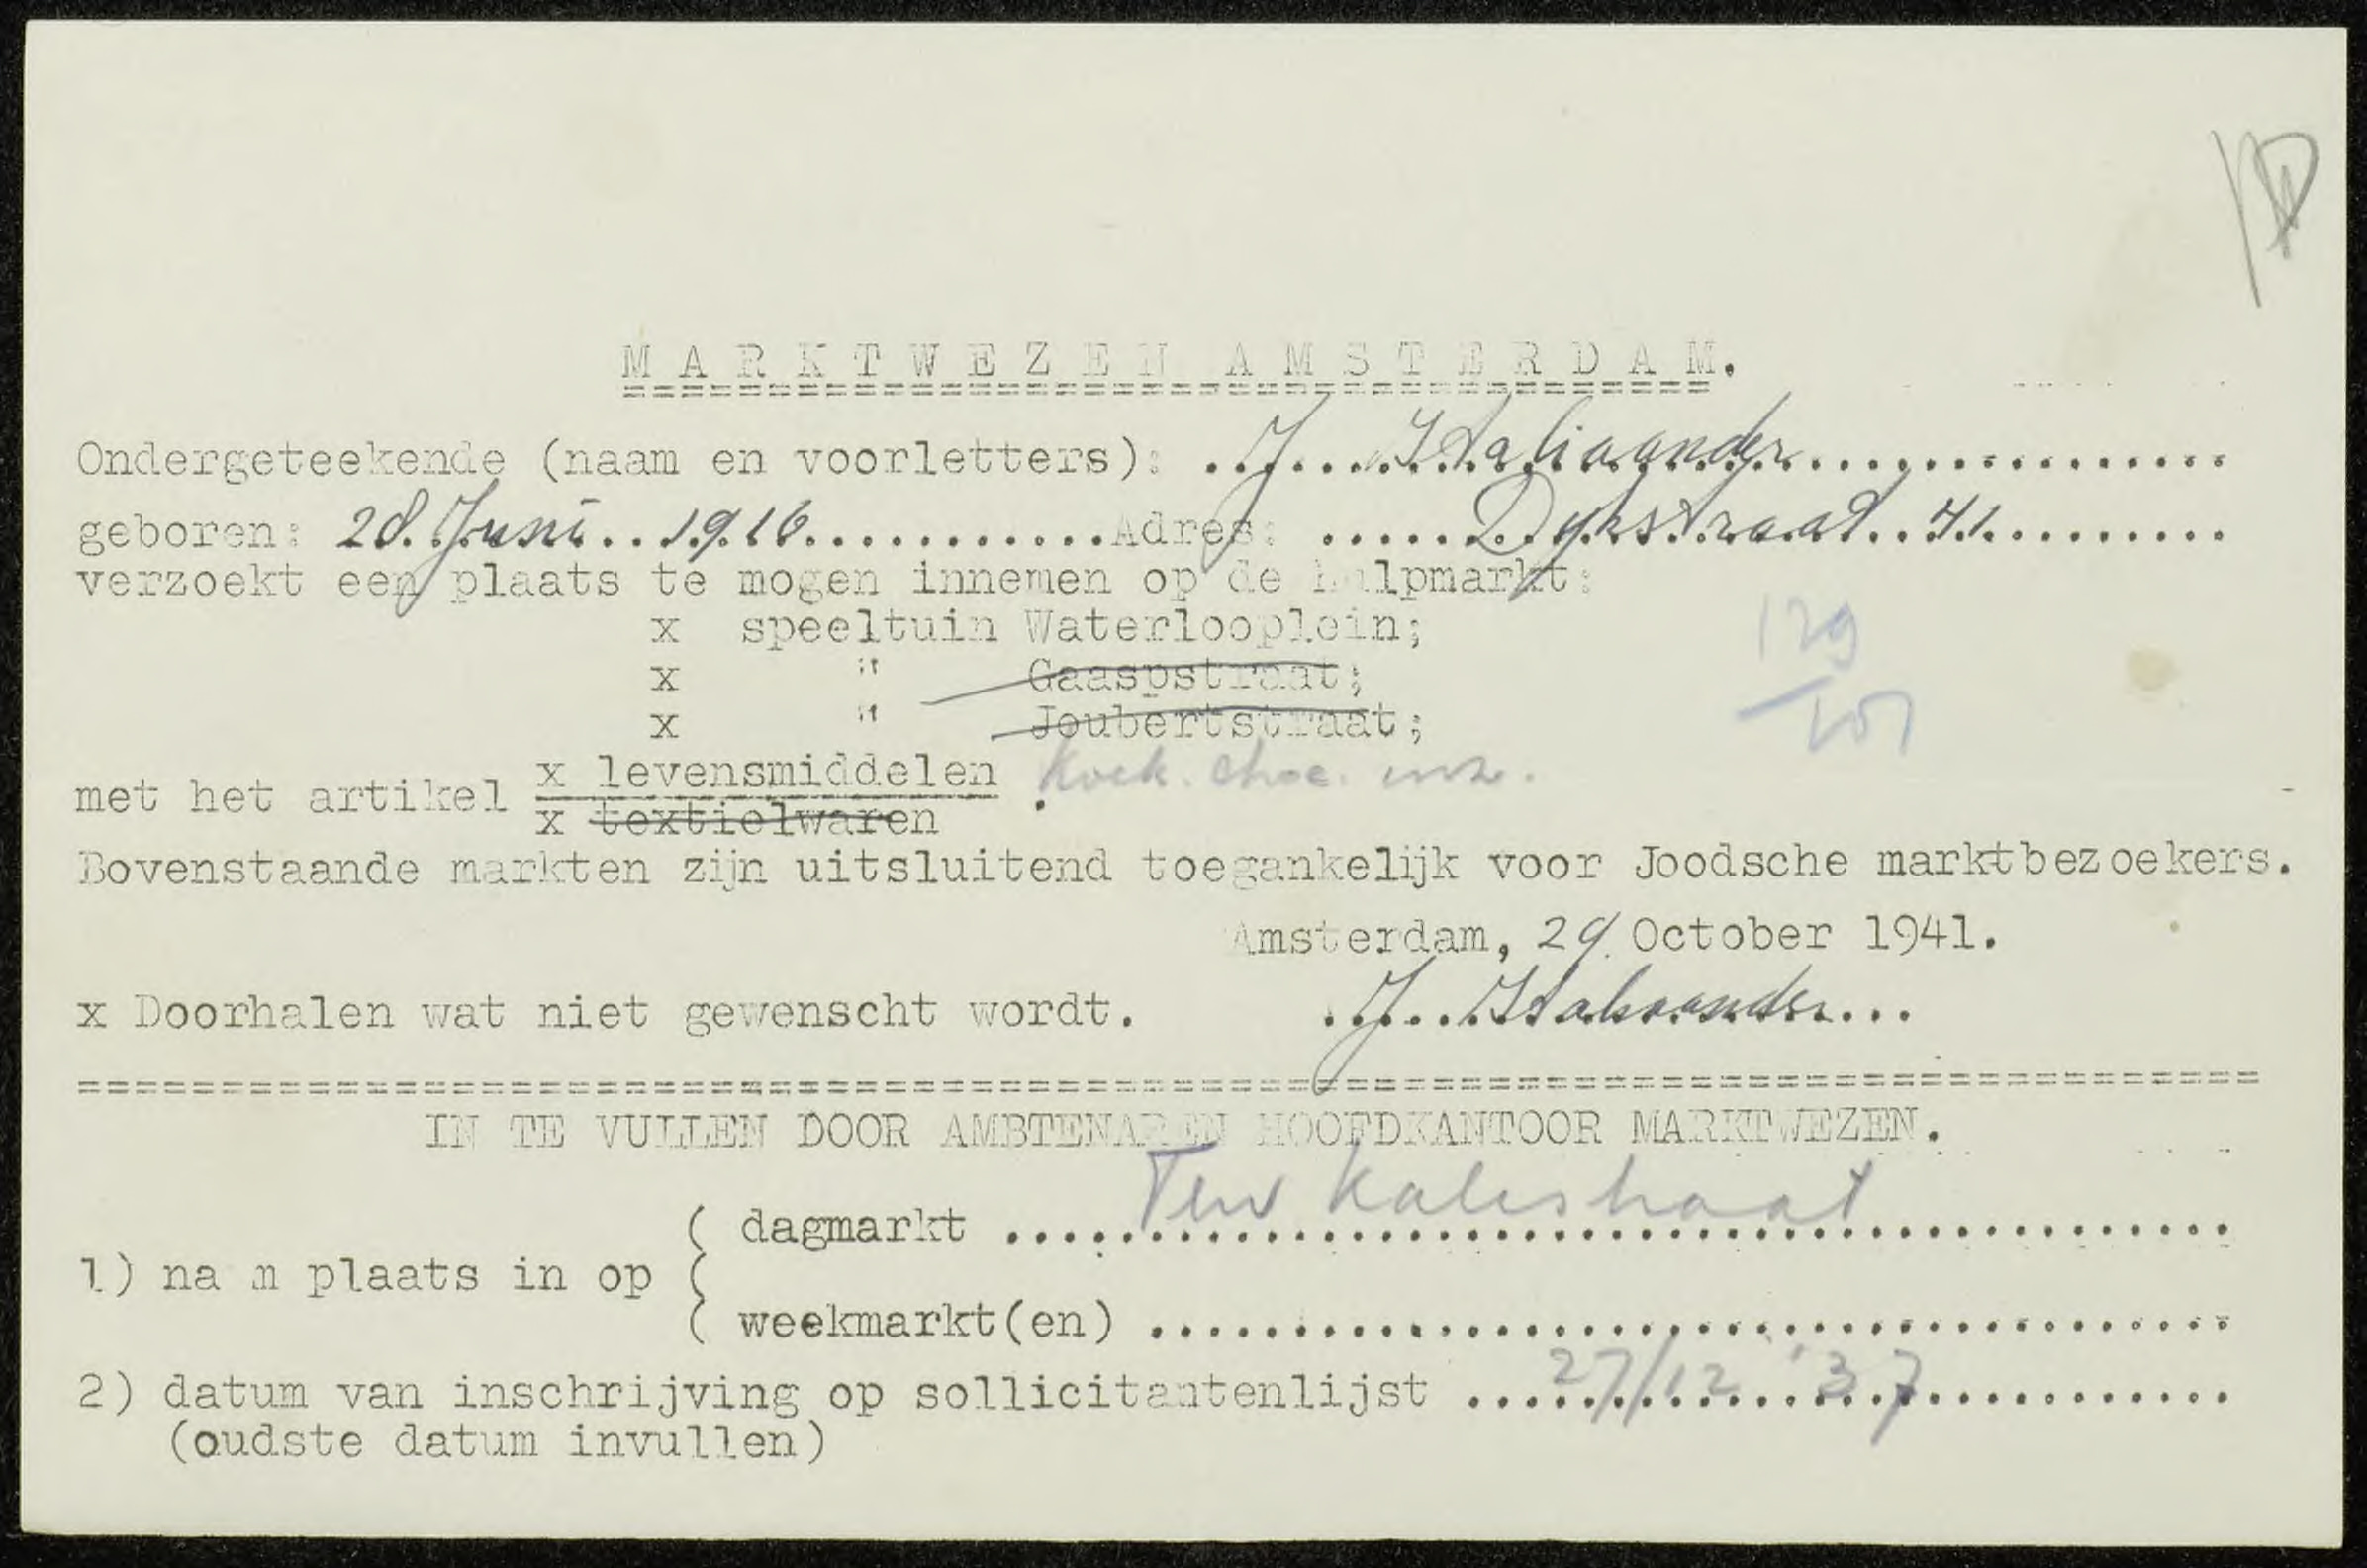 MARKTWEZEN AMSTERDAM.
Ondergeteekende (naam en voorletters): J. Italiaander
geboren: 28 Juni 1916 Adres: Dykstraat 41
verzoekt een plaats te mogen innemen op de hulpmarkt:
x speeltuin Waterlooplein;
x " Gaaspstraat;
x " Joubertstraat;
129
met het artikel x levensmiddelen Koek. Choc. enz.
x textielwaren
Bovenstaande markten zijn uitsluitend toegankelijk voor Joodsche marktbezoekers.
Amsterdam, 29 October 1941.
x Doorhalen wat niet gewenscht wordt. J. Italiaander
IN TE VULLEN DOOR AMBTENAREN HOOFDKANTOOR MARKTWEZEN.
( dagmarkt Ten Katestraat
1) nam plaats in op (
( weekmarkt(en)
2) datum van inschrijving op sollicitantenlijst 27/12 '37
(oudste datum invullen)